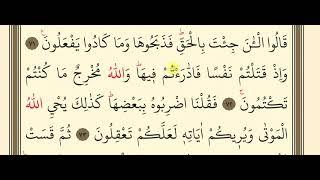 قَالُوا الْـٰٔنَ جِئْتَ بِالْحَقِّۜ فَذَبَحُوهَا وَمَا كَادُوا يَفْعَلُونَ۟ ﴿٧١﴾
وَاِذْ قَتَلْتُمْ نَفْسًا فَادّٰرَءْتُمْ ف۪يهَاۜ وَاللّٰهُ مُخْرِجٌ مَا كُنْتُمْ
تَكْتُمُونَۚ ﴿٧٢﴾ فَقُلْنَا اضْرِبُوهُ بِبَعْضِهَاۜ كَذٰلِكَ يُحْيِ اللّٰهُ
الْمَوْتٰى وَيُر۪يكُمْ اٰيَاتِه۪ لَعَلَّكُمْ تَعْقِلُونَ ﴿٧٣﴾ ثُمَّ قَسَتْ